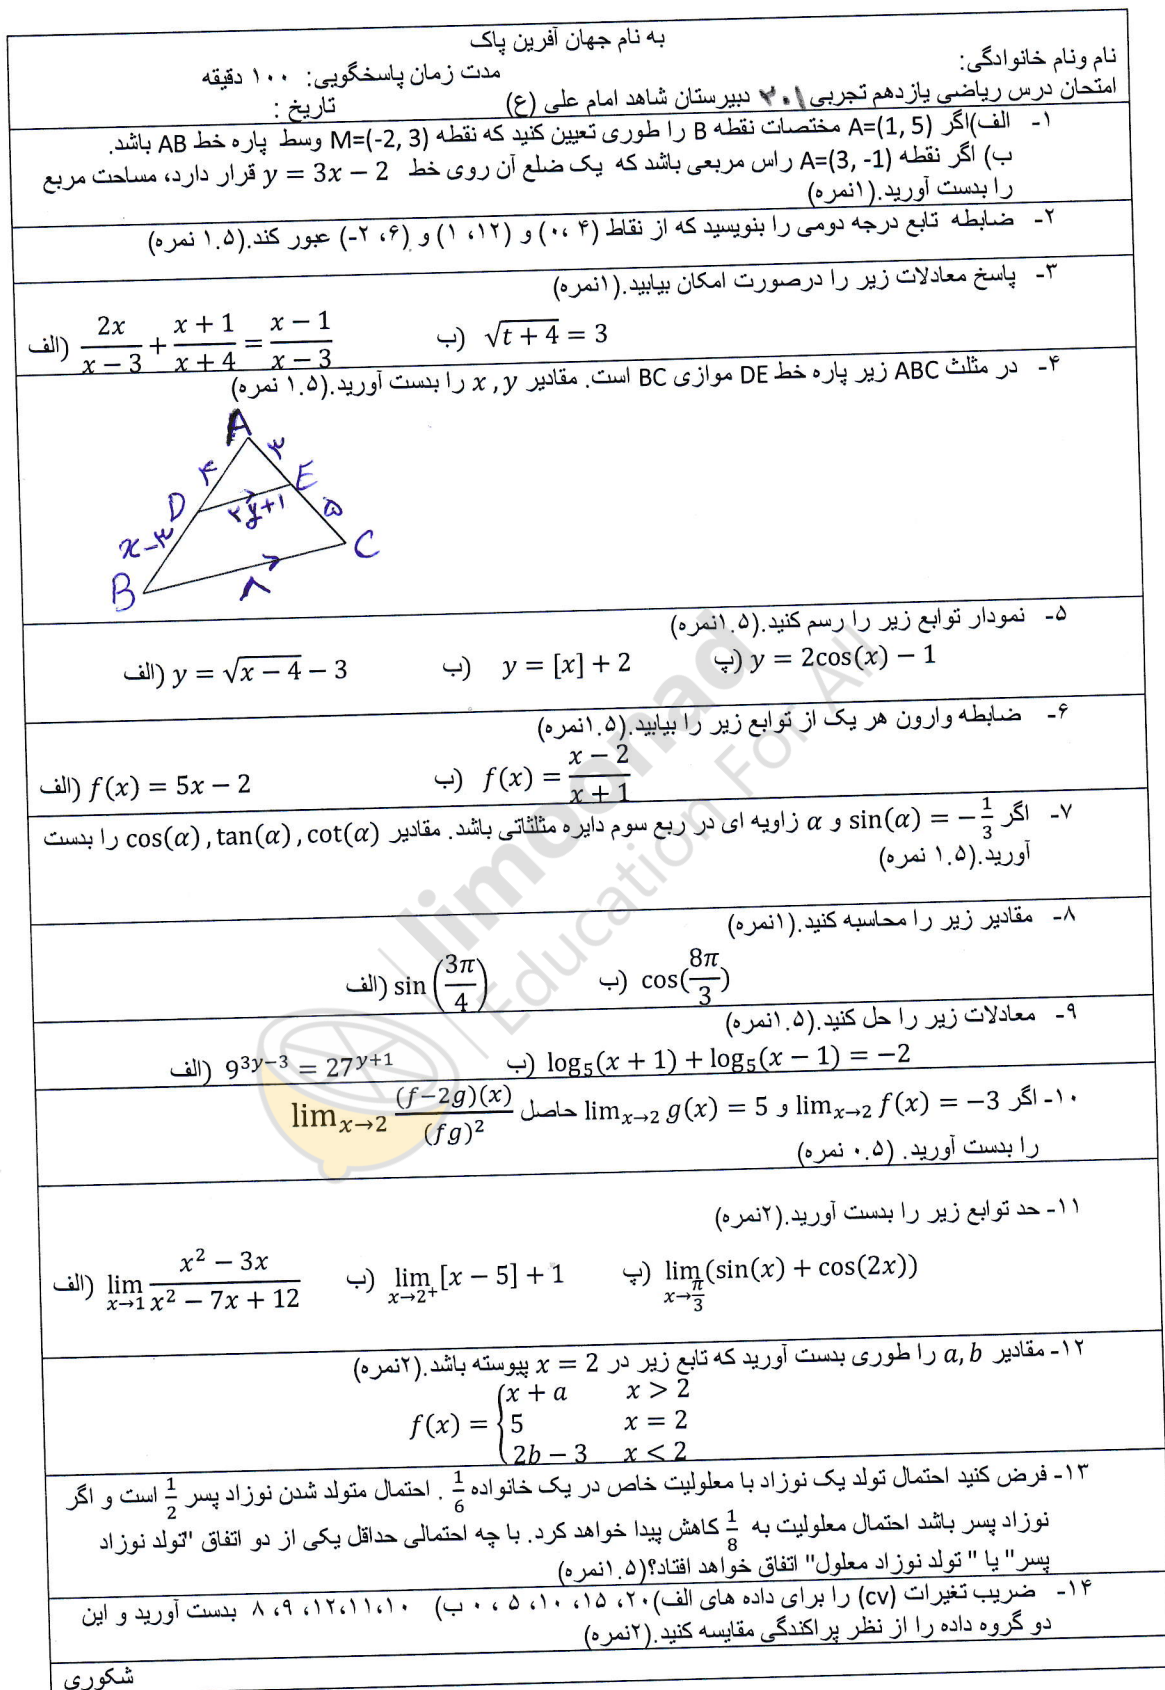 به نام جهان آفرین پاک
نام ونام خانوادگی:
مدت زمان پاسخگویی: ۱۰۰ دقیقه
امتحان درس ریاضی یازدهم تجربی ۲۰۱ دبیرستان شاهد امام علی (ع) تاریخ :
۱- الف)اگر A=(1, 5) مختصات نقطه B را طوری تعیین کنید که نقطه M=(-2, 3) وسط پاره خط AB باشد.
ب) اگر نقطه A=(3, -1) راس مربعی باشد که یک ضلع آن روی خط y = 3x − 2 قرار دارد، مساحت مربع
را بدست آورید.(۱نمره)
۲- ضابطه تابع درجه دومی را بنویسید که از نقاط (۰، ۴) و (۱ ،۱۲) و (۲- ،۶) عبور کند.(۱.۵ نمره)
۳- پاسخ معادلات زیر را درصورت امکان بیابید.(۱نمره)
الف) 2x/(x − 3) + (x + 1)/(x + 4) = (x − 1)/(x − 3) ب) √(t + 4) = 3
۴- در مثلث ABC زیر پاره خط DE موازی BC است. مقادیر x , y را بدست آورید.(۱.۵ نمره)
A
۴ ۳
D E
۲y+۱ ۵
x-۳
B C
۸
۵- نمودار توابع زیر را رسم کنید.(۱.۵نمره)
الف) y = √(x − 4) − 3 ب) y = [x] + 2 پ) y = 2cos(x) − 1
۶- ضابطه وارون هر یک از توابع زیر را بیابید.(۱.۵نمره)
الف) f(x) = 5x − 2 ب) f(x) = (x − 2)/(x + 1)
۷- اگر sin(α) = −1/3 و α زاویه ای در ربع سوم دایره مثلثاتی باشد. مقادیر cos(α) , tan(α) , cot(α) را بدست
آورید.(۱.۵ نمره)
۸- مقادیر زیر را محاسبه کنید.(۱نمره)
الف) sin(3π/4) ب) cos(8π/3)
۹- معادلات زیر را حل کنید.(۱.۵نمره)
الف) 9^(3y−3) = 27^(y+1) ب) log₅(x + 1) + log₅(x − 1) = −2
۱۰- اگر lim x→2 f(x) = −3 و lim x→2 g(x) = 5 حاصل lim x→2 (f−2g)(x)/(fg)²
را بدست آورید. (۰.۵ نمره)
۱۱- حد توابع زیر را بدست آورید.(۲نمره)
الف) lim x→1 (x² − 3x)/(x² − 7x + 12) ب) lim x→2⁺ [x − 5] + 1 پ) lim x→π/3 (sin(x) + cos(2x))
۱۲- مقادیر a, b را طوری بدست آورید که تابع زیر در x = 2 پیوسته باشد.(۲نمره)
x + a x > 2
f(x) = { 5 x = 2
2b − 3 x < 2
۱۳- فرض کنید احتمال تولد یک نوزاد با معلولیت خاص در یک خانواده 1/6 . احتمال متولد شدن نوزاد پسر 1/2 است و اگر
نوزاد پسر باشد احتمال معلولیت به 1/8 کاهش پیدا خواهد کرد. با چه احتمالی حداقل یکی از دو اتفاق "تولد نوزاد
پسر" یا " تولد نوزاد معلول" اتفاق خواهد افتاد؟(۱.۵نمره)
۱۴- ضریب تغیرات (cv) را برای داده های الف)۲۰، ۱۵، ۱۰، ۵ ، ۰ ب) ۱۰ ،۱۲،۱۱، ۹، ۸ بدست آورید و این
دو گروه داده را از نظر پراکندگی مقایسه کنید.(۲نمره)
شکوری
limoonad
Education For All